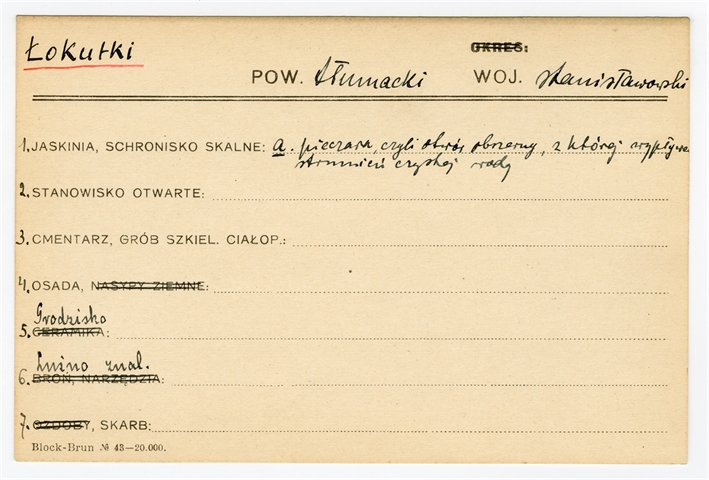 Łokutki
OKRES:
POW. tłumacki WOJ. stanisławowski
1. JASKINIA, SCHRONISKO SKALNE: a. pieczara, czyli otwór obszerny, z której wypływa
strumień czystej wody
2. STANOWISKO OTWARTE:
3. CMENTARZ, GRÓB SZKIEL. CIAŁOP.:
4. OSADA, NASYPY ZIEMNE:
Grodzisko
5. CERAMIKA:
Luźno znal.
6. BROŃ, NARZĘDZIA:
7. OZDOBY, SKARB:
Block-Brun № 43—20.000.